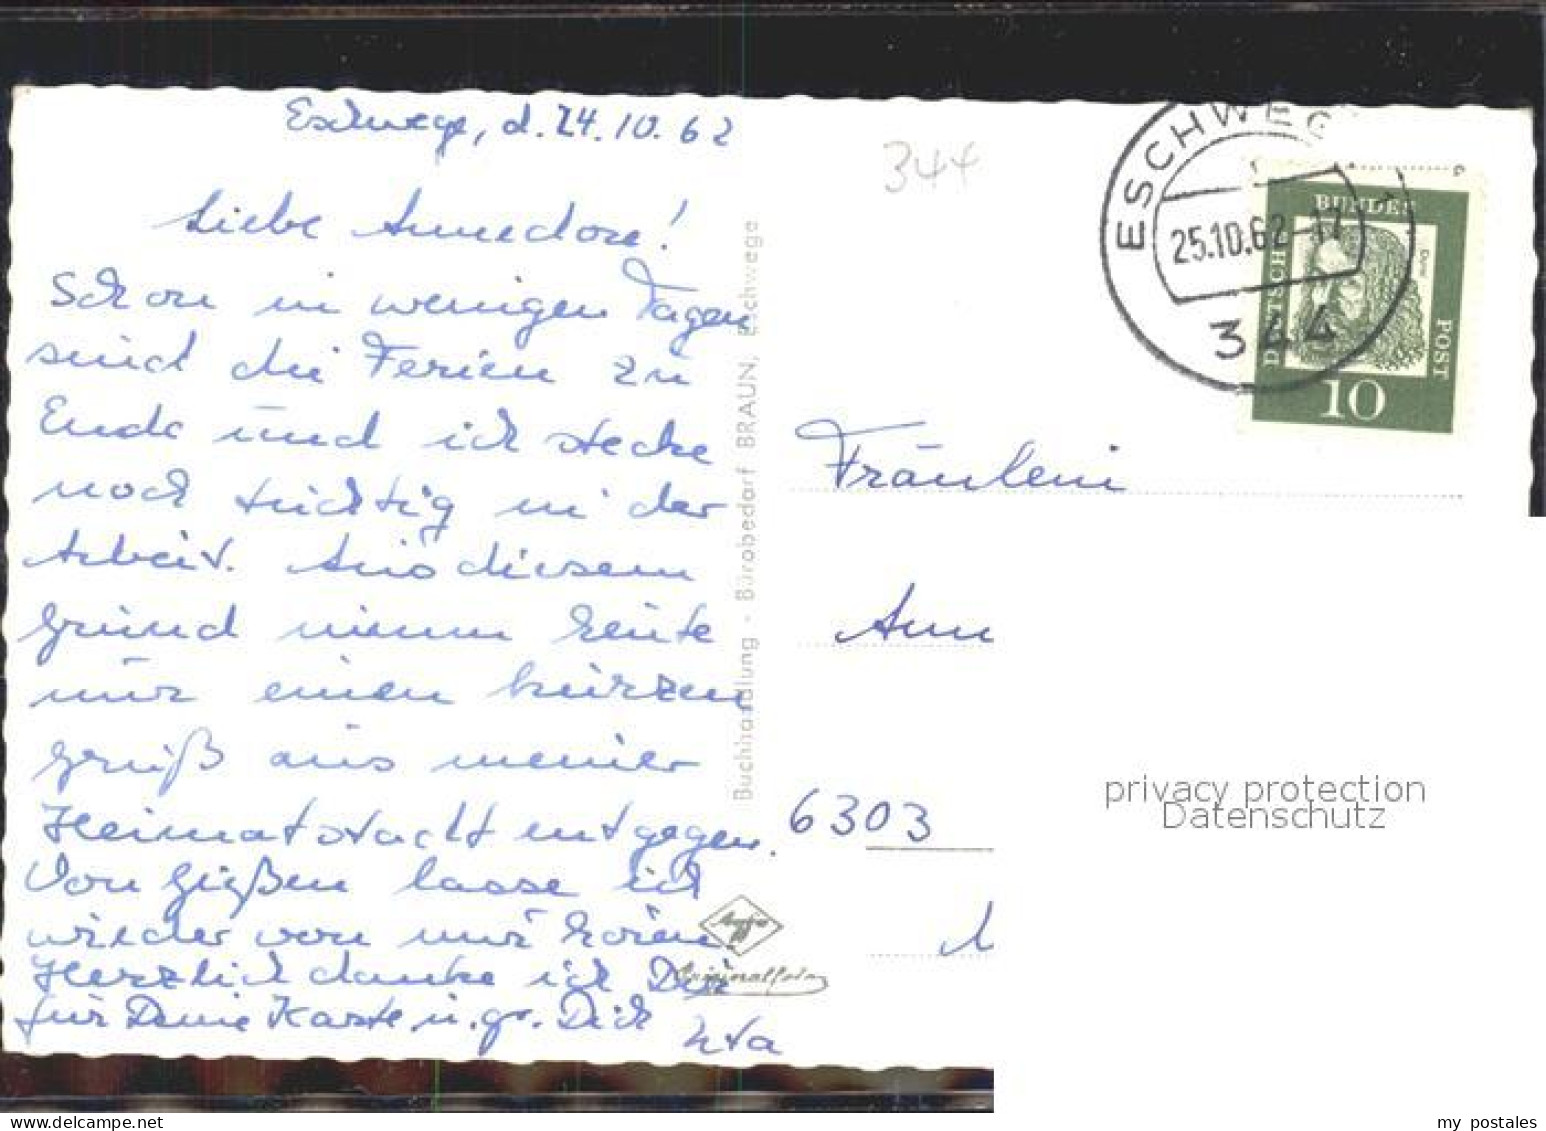 Eschwege, d. 24.10.62
344
Liebe Annedore!
Schon in wenigen Tagen
sind die Ferien zu
Ende und ich stecke
noch tüchtig in der
Arbeit. Aus diesem
Grund nimm heute
nur einen kurzen
Gruß aus meiner
Heimatstadt entgegen.
Von Gießen lasse ich
wieder von mir hören.
Herzlich danke ich Dir
für Deine Karte u. gr. Dich
Uta
Buchhandlung · Bürobedarf BRAUN, Eschwege
Agfa
Originalfoto
ESCHWEGE
25.10.62-17
344
DEUTSCHE BUNDES POST
Dürer
10
Fräulein
Ann
6303
privacy protection
Datenschutz
delcampe.net
my_postales